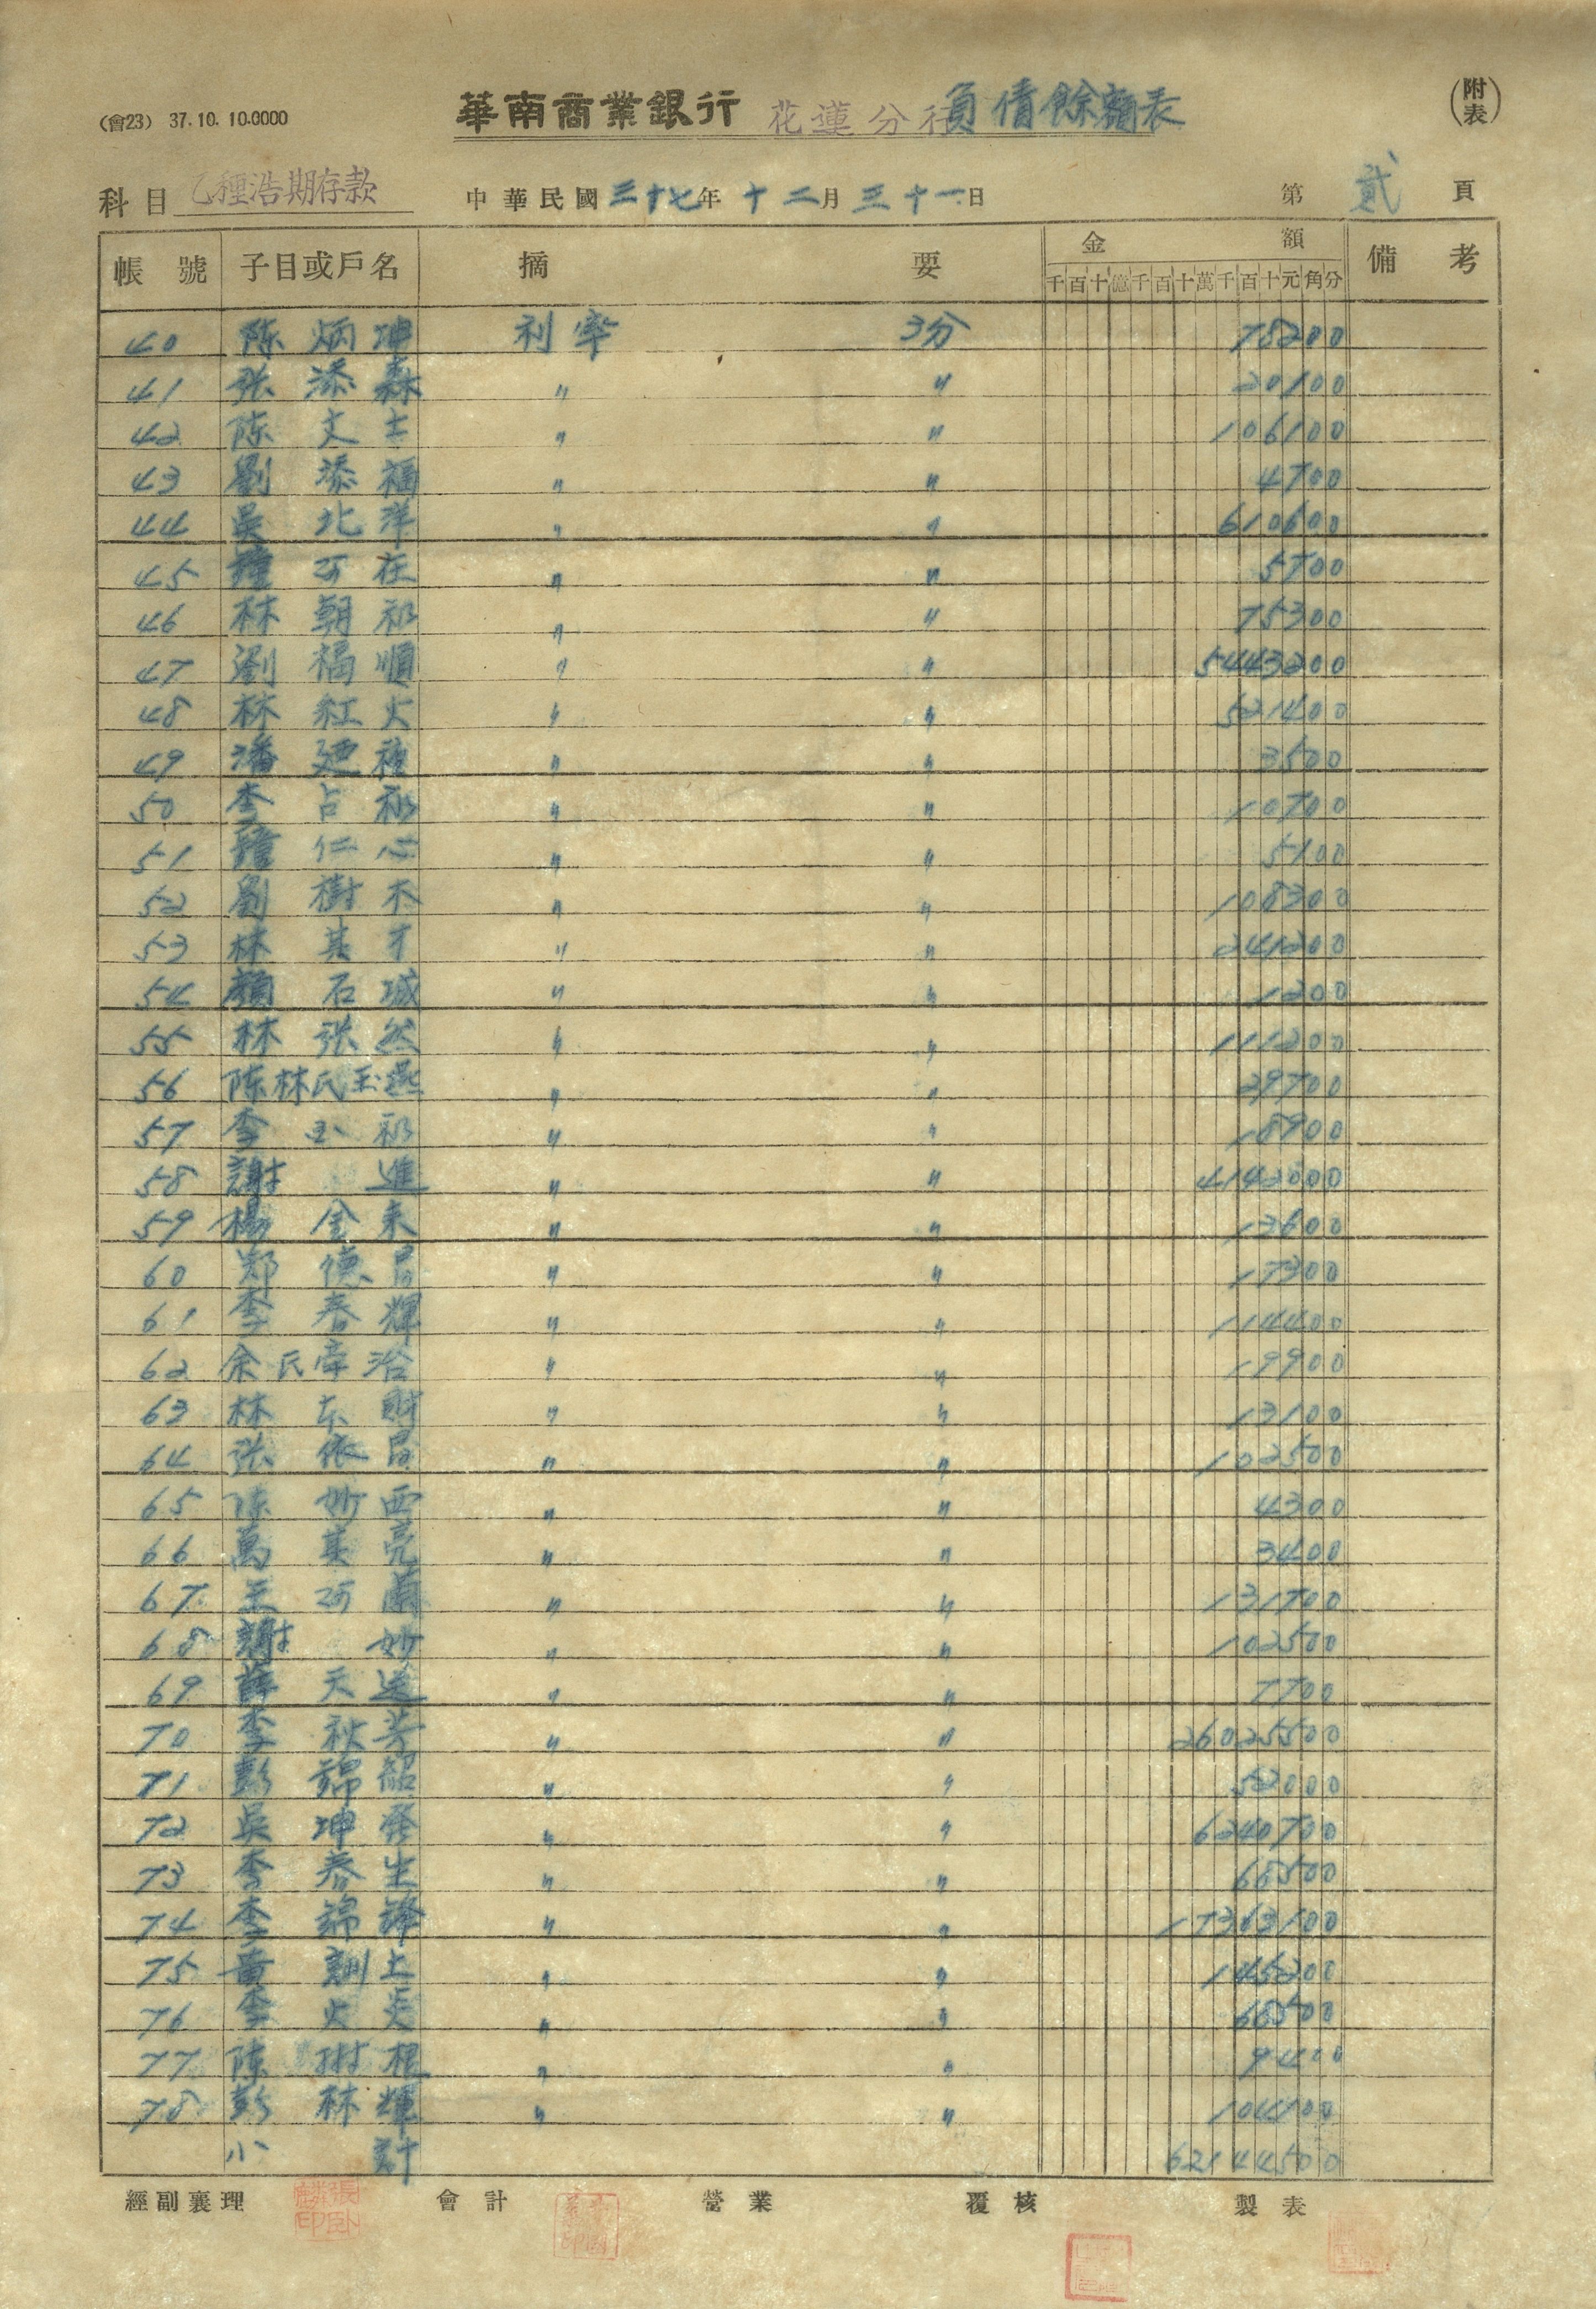 (會23) 37.10.10.0000
華南商業銀行 花蓮分行 負債餘額表
(附表)
科目 乙種活期存款 中華民國三十七年十二月三十一日 第貳頁
帳號 子目或戶名 摘要 金額 備考
千百十億千百十萬千百十元角分
40 陈炳坤 利率 3分 78200
41 张添森 〃 〃 20100
42 陈文士 〃 〃 106100
43 劉添福 〃 〃 4700
44 吳北洋 〃 〃 610600
45 鐘可在 〃 〃 5700
46 林朝 〃 〃 75300
47 劉福順 〃 〃 5443200
48 林紅火 〃 〃 521400
49 潘 〃 〃 3500
50 李占 〃 〃 10700
51 鐘仁心 〃 〃 5100
52 劉樹木 〃 〃 108300
53 林其才 〃 〃 241200
54 顏石城 〃 〃 1200
55 林张然 〃 〃 111200
56 陈林氏玉燕 〃 〃 29700
57 李玉 〃 〃 18900
58 謝進 〃 〃 4142000
59 楊金来 〃 〃 13600
60 郑德昌 〃 〃 17300
61 李春輝 〃 〃 114400
62 余氏 治 〃 〃 19900
63 林 財 〃 〃 13100
64 张依昌 〃 〃 102500
65 陈妙西 〃 〃 4300
66 萬其亮 〃 〃 3400
67 王阿蘭 〃 〃 131700
68 謝妙 〃 〃 102500
69 薛天送 〃 〃 7700
70 李秋芳 〃 〃 26025500
71 彭錦韶 〃 〃 52000
72 吳坤發 〃 〃 6240700
73 李春生 〃 〃 66500
74 李錦鋒 〃 〃 17363100
75 黃訓土 〃 〃 145200
76 李火炎 〃 〃 66500
77 陳 根 〃 〃 9400
78 彭林輝 〃 〃 104100
小計 62144500
經副襄理 會計 營業 覆核 製表